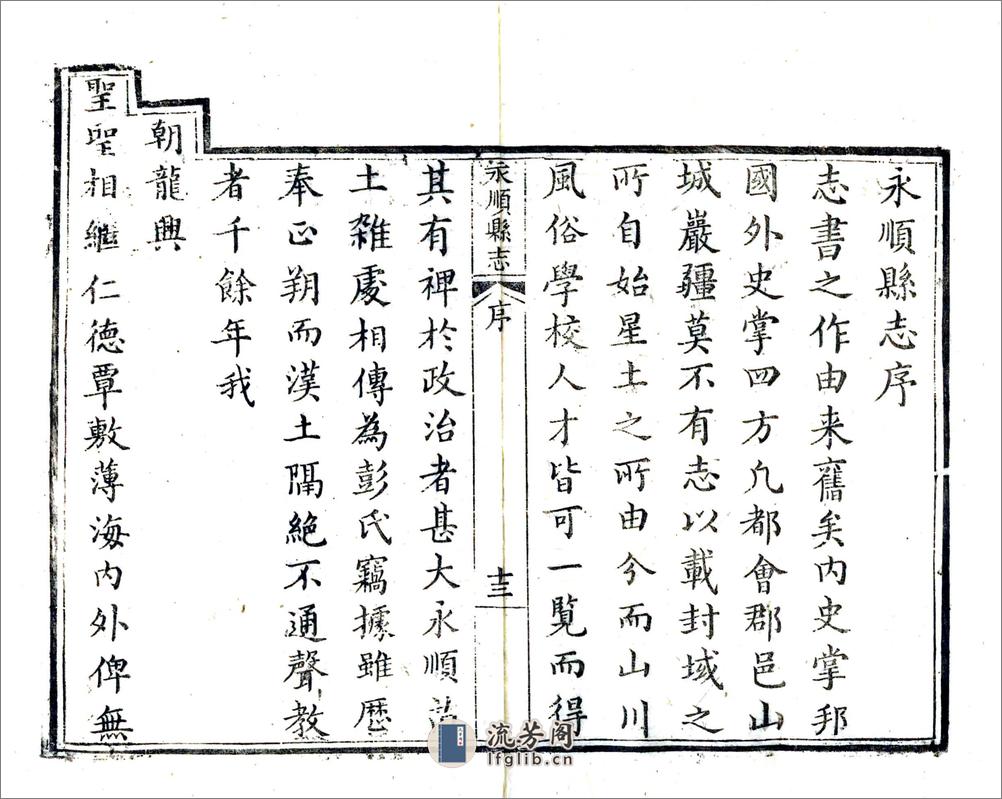 永順縣志序
志書之作由来舊矣内史掌邦
國外史掌四方凢都會郡邑山
城巖疆莫不有志以載封域之
所自始星土之所由分而山川
風俗學校人才皆可一覧而得
永順縣志 序 十三
其有裨於政治者甚大永順
土雜處相傳為彭氏竊據雖歷
奉正朔而漢土隔絶不通聲教
者千餘年我
朝龍興
聖聖相繼仁德覃敷薄海内外俾無
流芳阁
lfglib.cn